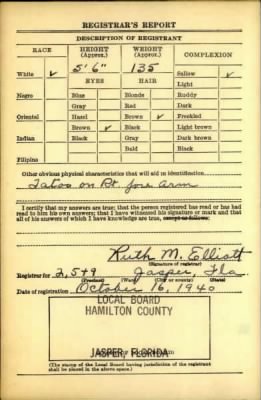 REGISTRAR'S REPORT
DESCRIPTION OF REGISTRANT
RACE HEIGHT (Approx.) WEIGHT (Approx.) COMPLEXION
5' 6" 135
White ✓ EYES HAIR Sallow ✓
Light
Negro Blue Blonde Ruddy
Gray Red Dark
Oriental Hazel Brown ✓ Freckled
Brown ✓ Black Light brown
Indian Black Gray Dark brown
Bald Black
Filipino
Other obvious physical characteristics that will aid in identification
on Rt. fore arm
I certify that my answers are true; that the person registered has read or has had
read to him his own answers; that I have witnessed his signature or mark and that
all of his answers of which I have knowledge are true, except as follows:
Ruth M. Elliott
(Signature of registrar)
Registrar for 2, 549 Jasper, Fla
(Precinct) (Ward) (City or county) (State)
Date of registration October 16, 1940
LOCAL BOARD
HAMILTON COUNTY
JASPER, FLORIDA
(The stamp of the Local Board having jurisdiction of the registrant
shall be placed in the above space.)